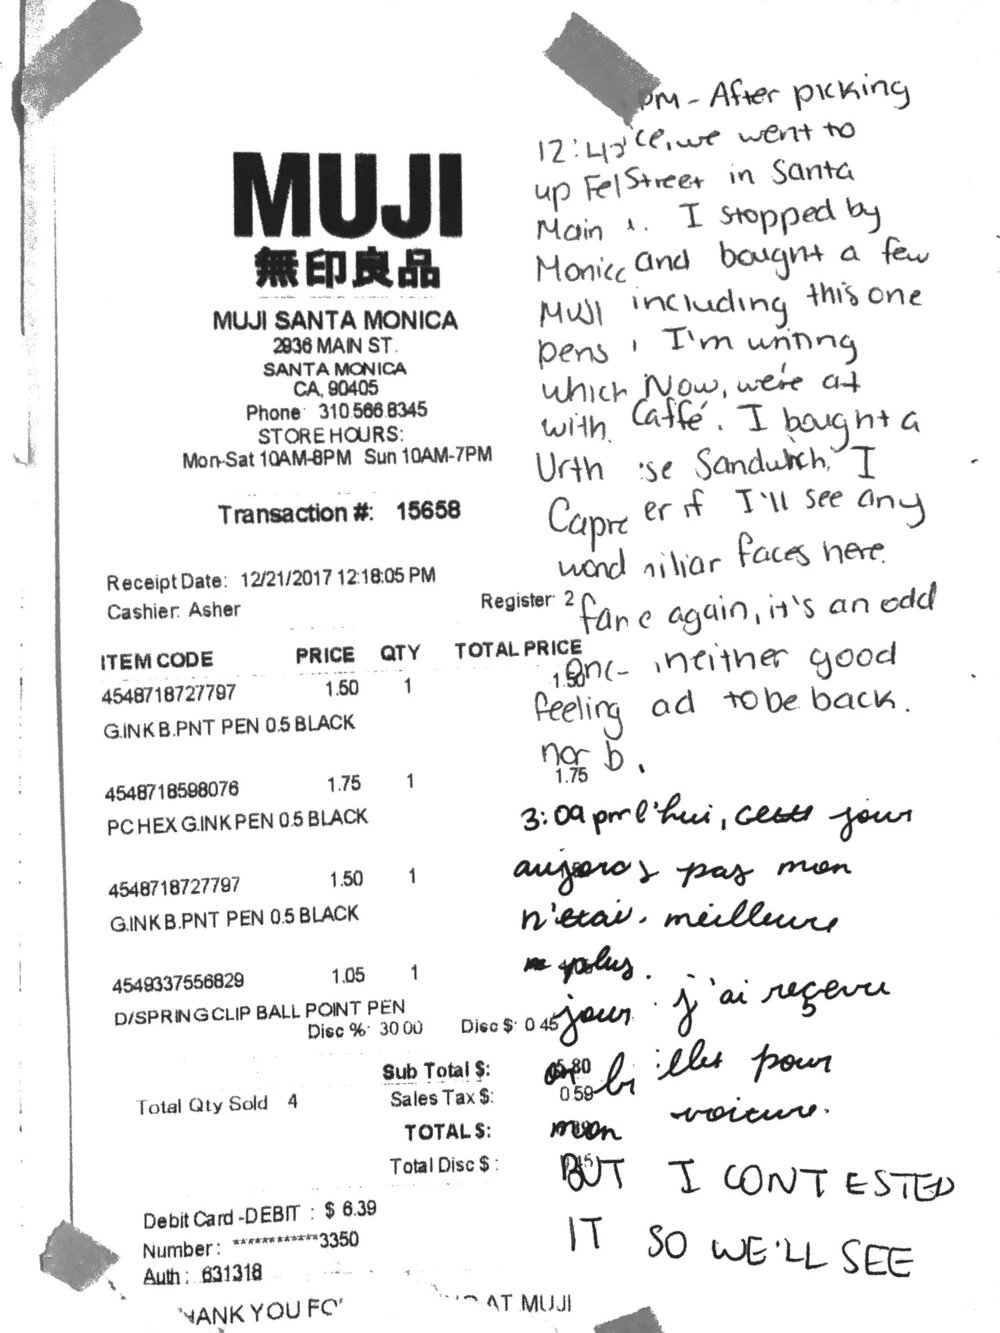 MUJI
無印良品
MUJI SANTA MONICA
2936 MAIN ST.
SANTA MONICA
CA, 90405
Phone: 310.566.8345
STORE HOURS:
Mon-Sat 10AM-8PM Sun 10AM-7PM
Transaction #: 15658
Receipt Date: 12/21/2017 12:18:05 PM
Cashier: Asher
Register: 2
ITEM CODE PRICE QTY TOTAL PRICE
4548718727797 1.50 1 1.50
G.INK B.PNT PEN 0.5 BLACK
4548718598076 1.75 1 1.75
PC HEX G.INK PEN 0.5 BLACK
4548718727797 1.50 1
G.INK B.PNT PEN 0.5 BLACK
4549337556829 1.05 1
D/SPRING CLIP BALL POINT PEN
Disc %: 30.00 Disc $: 0.45
Sub Total $: 5.80
Total Qty Sold 4
Sales Tax $: 0.59
TOTAL $:
Total Disc $:
Debit Card -DEBIT : $ 6.39
Number: ************3350
Auth: 631318
HANK YOU FO AT MUJI
PM - After picking
12:4 ice, we went to
up Fel Street in Santa
Main I stopped by
Monic and bought a few
MUJI including this one
pens I'm writing
which Now, we're at
with. Caffé. I bought a
Urth se Sandwich. I
Capre er if I'll see any
wond miliar faces here.
fa e again, it's an odd
Onc neither good
feeling ad to be back.
nor b
3:09 pm l'hui, cest jour
aujour s pas mon
n'étai meilleure
plus.
jour. j'ai reçevu
bi llet pour
mon voiture.
BUT I CONTESTED
IT SO WE'LL SEE